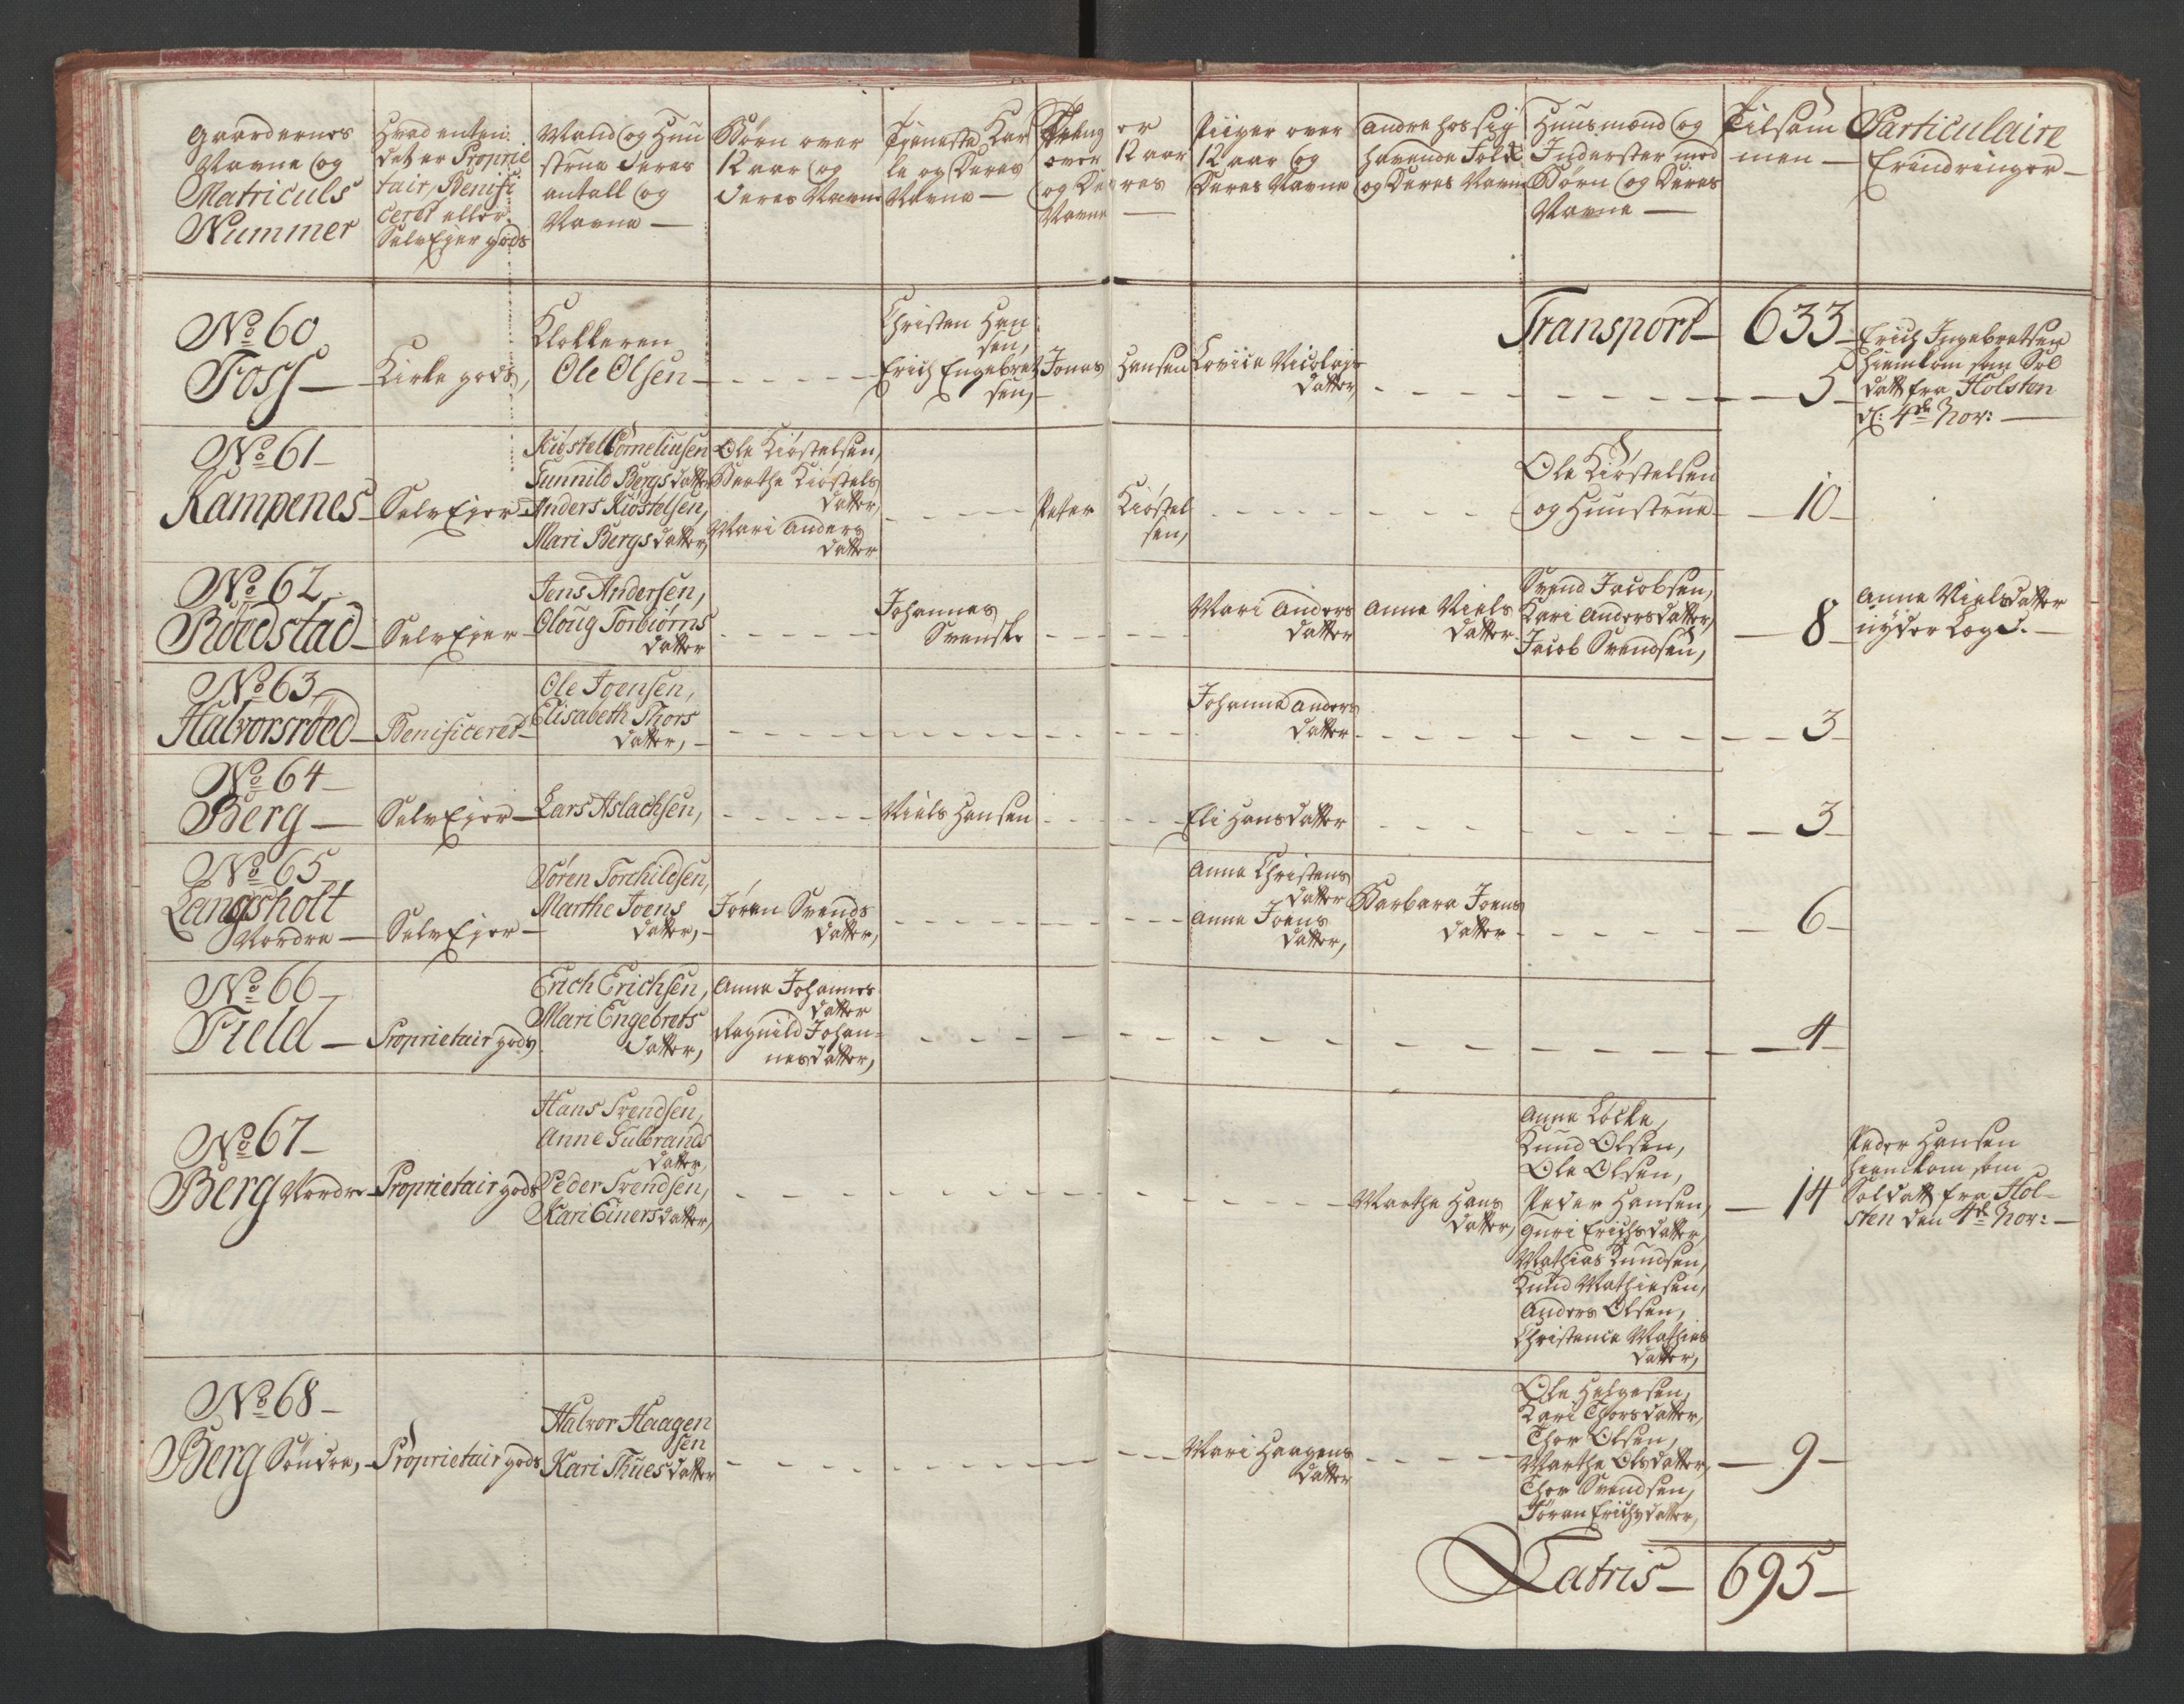 Gaardernes
Navne og
Matriculs
Nummer
Hvad enten
det er Proprie
tair, Benifi
ceret eller
SelvEjer gods
Mand og Huu
strue deres
antall og
Navne —
Børn over
12 aar og
deres Navne
Tieneste Kar
le og Deres
Navne —
Dreng er
over 12 aar
og Deres
Navne —
Piiger over
12 aar og
Deres Navne
Andre hos sig
havende Folk
og Deres Navne
Huusmænd og
Inderster med
Børn og Deres
Navne —
Tilsam
men —
Particulaire
Erindringer —
Transport — 633 —
No 60
Foss —
Kirke gods,
Klokkeren
Ole Olsen —
Christen Han
sen,
Erich Engebret
sen,
Jonas Hansen
Lovice Nicolays
datter,
5 —
Erich Ingebretsen
hiemkom som Sol
datt fra Holsten
d: 4de Nov: —
No 61 —
Kampenes —
SelvEjer
Kiøstel Corneliusen
Gunnild Bergs datter
Anders Kiøstelsen,
Mari Bergs datter,
Ole Kiøstelsen,
Berthe Kiøstels
datter,
Mari Anders
datter
Peter Kiøstel
sen,
Ole Kiøstelsen
og Huustrue
10 —
No 62
Roedstad —
SelvEjer —
Jens Andersen,
Oloug Torbiørns
datter
Johannes
Svenske
Mari Anders
datter
Anne Niels
datter
Svend Jacobsen,
Kari Andersdatter,
Jacob Svendsen,
8 —
Anne Nielsdatter
nyder Lægd. —
No 63
Halvorsrøed —
Benificeret —
Ole Joensen,
Elisabeth Thors
datter, —
Johanne Anders
datter
3 —
No 64 —
Berg —
SelvEjer —
Lars Aslachsen,
Niels Hansen
Eli Hansdatter
3 —
No 65
Langsholt
Nordre —
SelvEjer —
Søren Torchildsen,
Marthe Joens
datter, —
Jøran Svends
datter,
Anne Christens
datter
Anne Joens
datter,
Barbara Joens
datter
6 —
No 66 —
Field —
Proprietair gods
Erich Erichsen,
Mari Engebrets
datter,
Anne Johannes
datter
Ragnild Johan=
nesdatter,
4 —
No 67 —
Berg Nordre —
Proprietair gods
Hans Svendsen,
Anne Gulbrands
datter,
Peder Svendsen,
Kari Einers datter,
Marthe Hans
datter,
Anne Løcke,
Knud Olsen,
Ole Olsen,
Peder Hansen,
Guri Erichsdatter,
Mathias Knudsen,
Knud Mathiesen,
Anders Olsen,
Christence Mathias
datter,
14
Peder Hansen
hiemkom som
Soldatt fra Hol=
sten den 4de Nov: —
No 68 —
Berg Søndre, —
Proprietair gods
Halvor Haagen
sen
Kari Thues datter
Mari Haagens
datter
Ole Helgesen,
Kari Thorsdatter,
Thor Olsen,
Marthe Olsdatter,
Thor Svendsen,
Jøran Erichsdatter,
9 —
Latris — 695 —